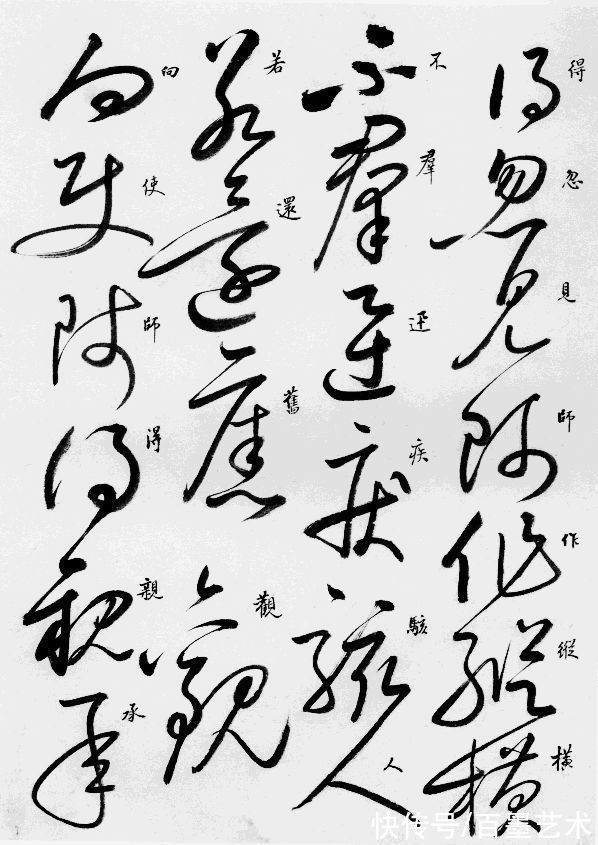 得忽見師作縱橫
不羣迅疾駭人
若還舊觀
向使師得親承
快传号/百墨艺术